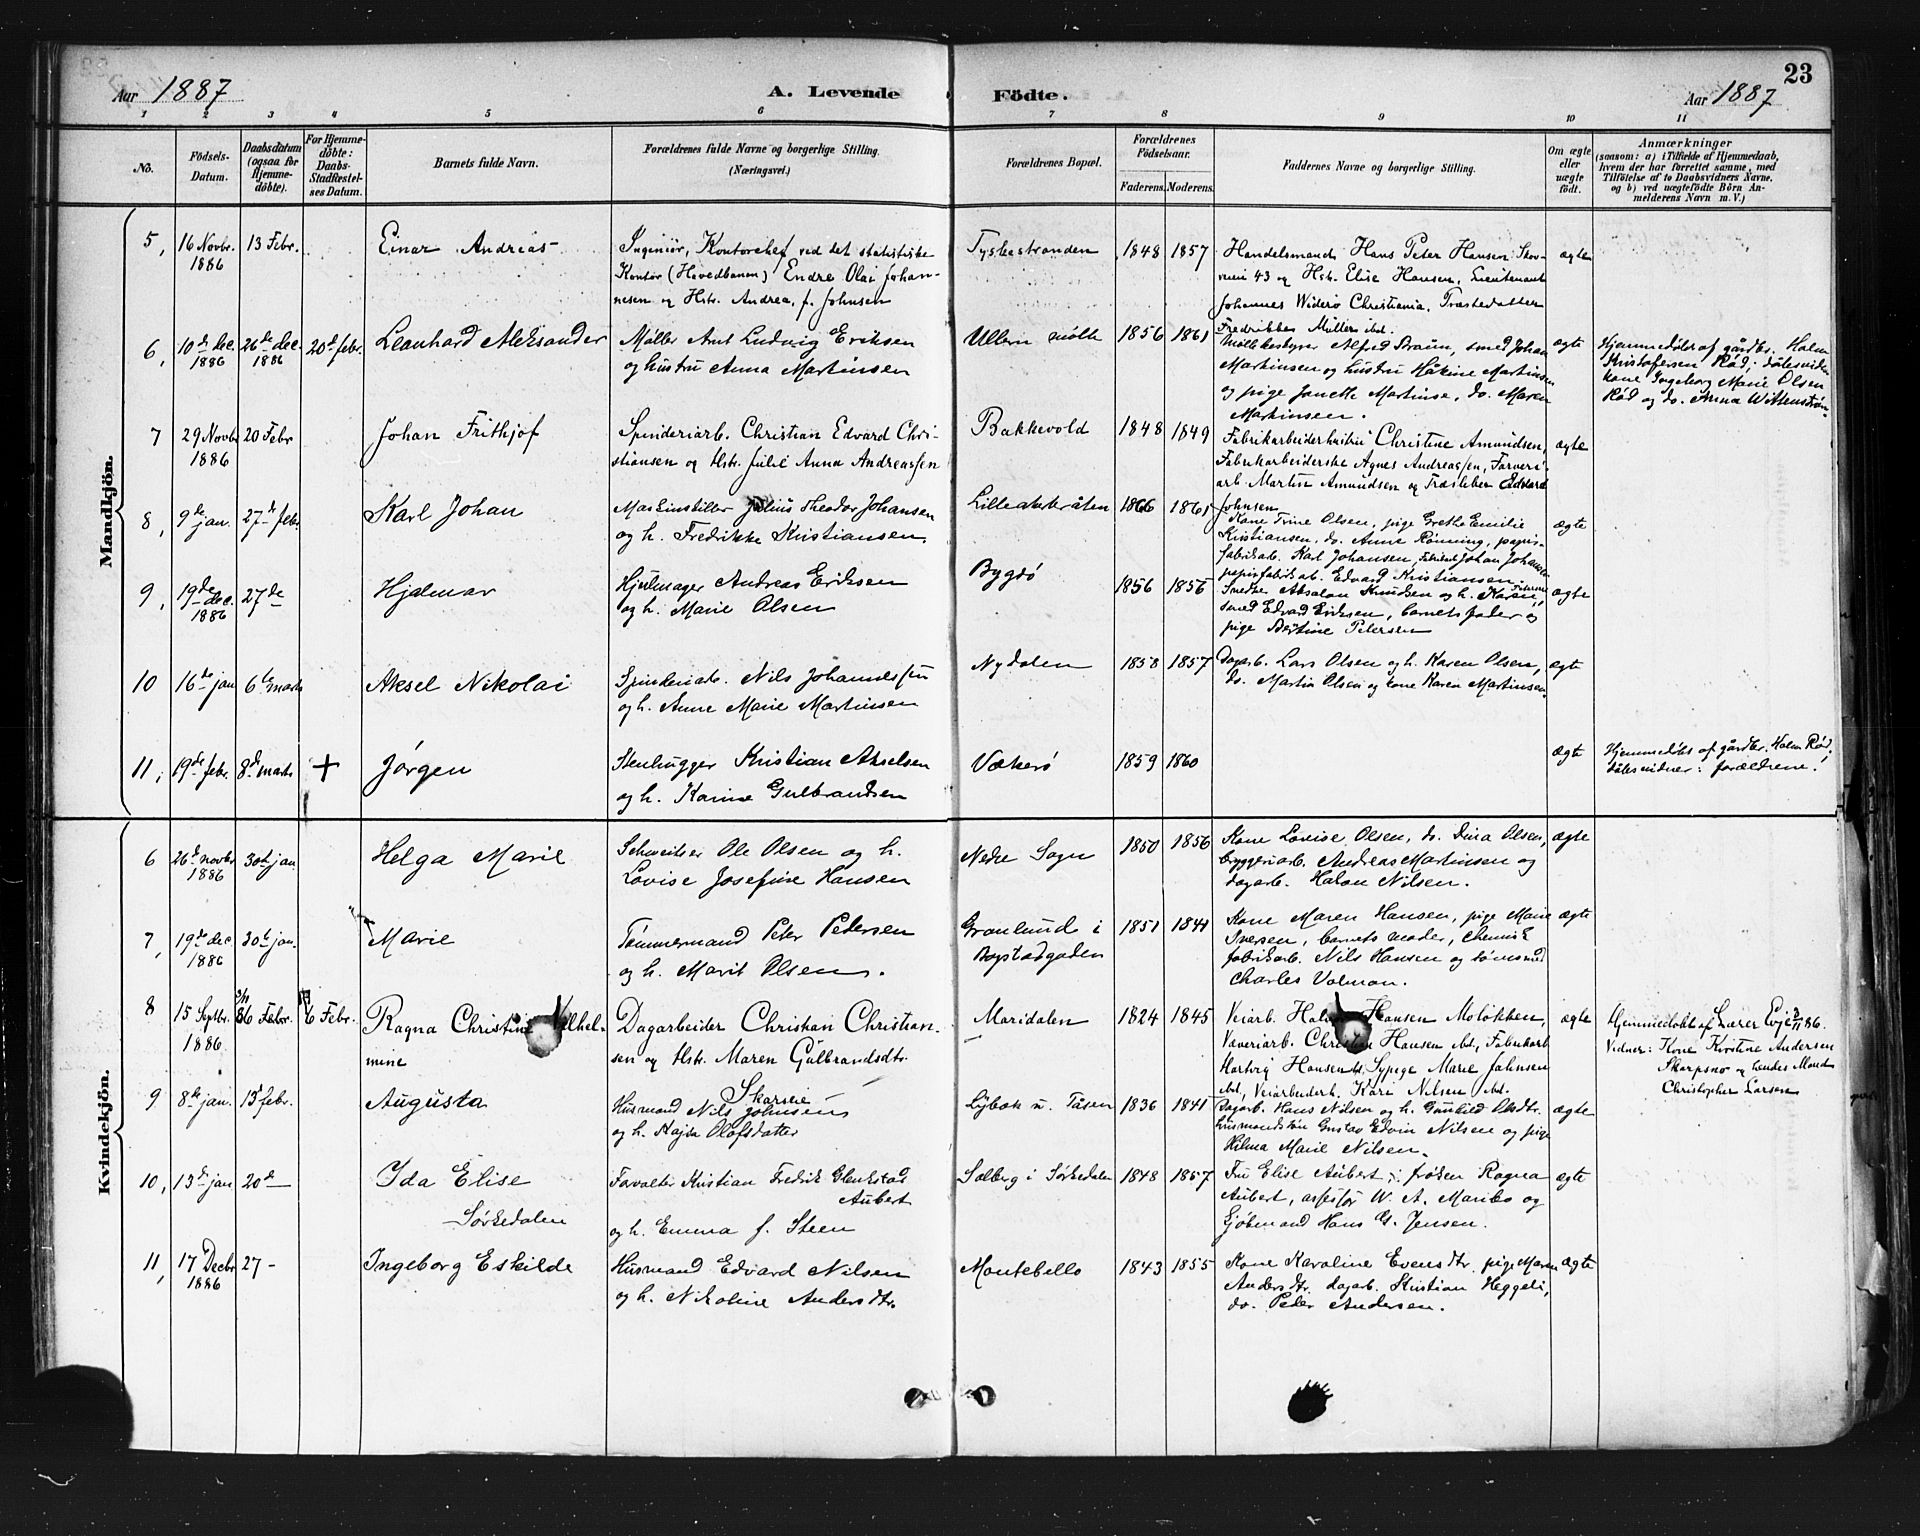 23
Aar 1887
A. Levende
Födte.
Aar 1887
1 2 3 4 5 6 7 8 9 10 11
No.
Födsels-
Datum.
Daabsdatum
(ogsaa for
Hjemme-
döbte).
For Hjemme-
döbte:
Daabs-
Stadfæstel-
ses Datum.
Barnets fulde Navn.
Forældrenes fulde Navne og borgerlige Stilling.
(Næringsvei.)
Forældrenes Bopæl.
Forældrenes
Födselsaar.
Faderens. Moderens.
Faddernes Navne og borgerlige Stilling.
Om ægte
eller
uægte
födt.
Anmærkninger
(saasom: a) i Tilfælde af Hjemmedaab,
hvem der har forrettet samme, med
Tilföielse af to Daabsvidners Navne.
og b) ved uægtefödte Börn An-
melderens Navn m. V.)
Mandkjön.
5, 16 Novbr. 1886 13 Febr. Einar Andreas
Ingeniør, Kontorchef ved det statistiske
Kontor (Hovedbanen) Endre Olai Johan-
nesen og Hst. Andrea, f. Johnsen
Tyskestranden 1848 1857
Handelsmand Hans Peter Hansen Skov-
veien 43 og Hst. Elise Hansen, Lieutenant
Johannes Widerø Christiania,
Fredrikke Müller ibd.
ægte
6, 10de dec. 1886 26de dec. 1886 20de febr. Leonhard Aleksander
Møller Amt Ludvig Eriksen
og hustru Anna Martinsen
Ullern mølle 1856 1861
Møllebestyrer Alfred Braun, smed Johan
Martinsen og hustru Håkine Martinsen
og pige Janette Martinse, do. Maren
Martinsen.
ægte
Hjemmedøbt af gårdbr. Halm
Kristofersen Rød; dåbsvidn.
kone Ingeborg Marie Olsen
Rød og do. Anna
7 29 Novbr 1886 20 Febr Johan Frithjof
Spinderiarb. Christian Edvard Chri-
stiansen og Hst. Julie Anna Andreassen
Bakkevold 1848 1849
Fabrikarbeiderhustru Christine Amundsen,
Fabrikarbeiderske Agnes Andreassen, Farveri-
arb. Martin Amundsen og Træsliber Edvard
Johnsen
ægte
8, 9de jan. 27de febr. Karl Johan
Maskinstiller Julius Theodor Johansen
og h. Fredrikke Kristiansen
Lilleakkråten 1866 1861
Kone Trine Olsen, pige Grethe Emilie
Kristiansen, do. Anne Rønning, papir-
fabrikarb. Karl Johansen, Johan Johansen
papirfabrikarb. Edvard Kristiansen.
ægte
9, 19de dec. 1886 27de Hjalmar
Hjulmager Andreas Eriksen
og h. Marie Olsen
Bygdø 1856 1856
Smedm. Absalon Knudsen og h. Karen
smed Edvard Eriksen, barnets fader og
pige Bertine Petersen
ægte
10 16de jan 6te marts Aksel Nikolai
Spinderiarb. Nils Johannessen
og h. Anne Marie Martinsen
Nydalen 1858 1857
Dagarb. Lars Olsen og h. Karen Olsen,
do. Martin Olsen og kone Karen Martinsen.
ægte
11, 19de febr. 8de marts + Jørgen
Stenhugger Kristian Akselsen
og h. Karine Gulbrandsen
Vækerø 1859 1860
ægte
Hjemmedøbt af gårdbr. Halm Rød.
dåbsvidner: forældrene.
Kvindekjön.
6 26de novbr 1886 30te jan Helga Marie
Schweitser Ole Olsen og h.
Lovise Josefine Hansen
Nedre Sogn 1850 1856
Kone Lovise Olsen, do. Dina Olsen,
bryggeriarb. Andreas Martinsen og
dagarb. Halvor Nilsen.
ægte
7, 19de dec. 1886 30te jan. Marie
Tømmermand Peter Pedersen
og h. Marit Olsen.
Granlund i
Bogstadgaden 1851 1841
Kone Maren Hansen, pige Marie
Iversen, barnets moder, chemisk
fabrikarb. Nils Hansen og tømmermd
Charles Valman.
ægte
8 15 Septbr. 1886 3/11 86 6 Febr. Ragna Christine Vilhel-
mine
Dagarbeider Christian Christian-
sen og Hst. Maren Gulbrandsdtr.
Maridalen 1824 1845
Veiarb. Hansen Moløkken,
Væveriarb. Christian Hansen ibd., Fabrikarb
Hartvig Hansen ibd., Sypige Marie Johnsen
ibd., Veiarbeiderh. Kari Nilsen ibd.
ægte
Hjemmedøbt af Lærer Evje 3/11 86.
Vidner: Kone Kirstine Andersen
Skarpsno og hendes Mand
Christopher Larsen
9 8de jan. 13de febr. Augusta
Skarseie
Husmand Nils Johnsen
og h. Kajsa Olofsdatter
Lybæk u. Tåsen 1836 1841
Dagarb. Hans Nilsen og h. Gunhild Olsdtr.
husmandssøn Gustav Edvin Nilsen og pige
Hilma Marie Nilsen.
ægte
10, 13de jan 20de Ida Elise
Sørkedalen
Forvalter Kristian Fredrik Glenkstad
Aubert
og h. Emma f. Steen
Solberg i Sørkedalen 1848 1857
Fru Elise Aubert, frøken Ragna
Aubert, assessor W. A. Maribo og
sjømand Hans G. Jensen.
ægte
11, 17 Decbr 1886 27 - Ingeborg Eskilde
Husmand Edvard Nilsen
og h. Nikoline Andersdtr.
Montebello 1843 1855
Kone Karoline Evensdtr. pige Maren
Andersdtr. dagarb. Kristian Heggeli,
do. Peder Andersen.
ægte